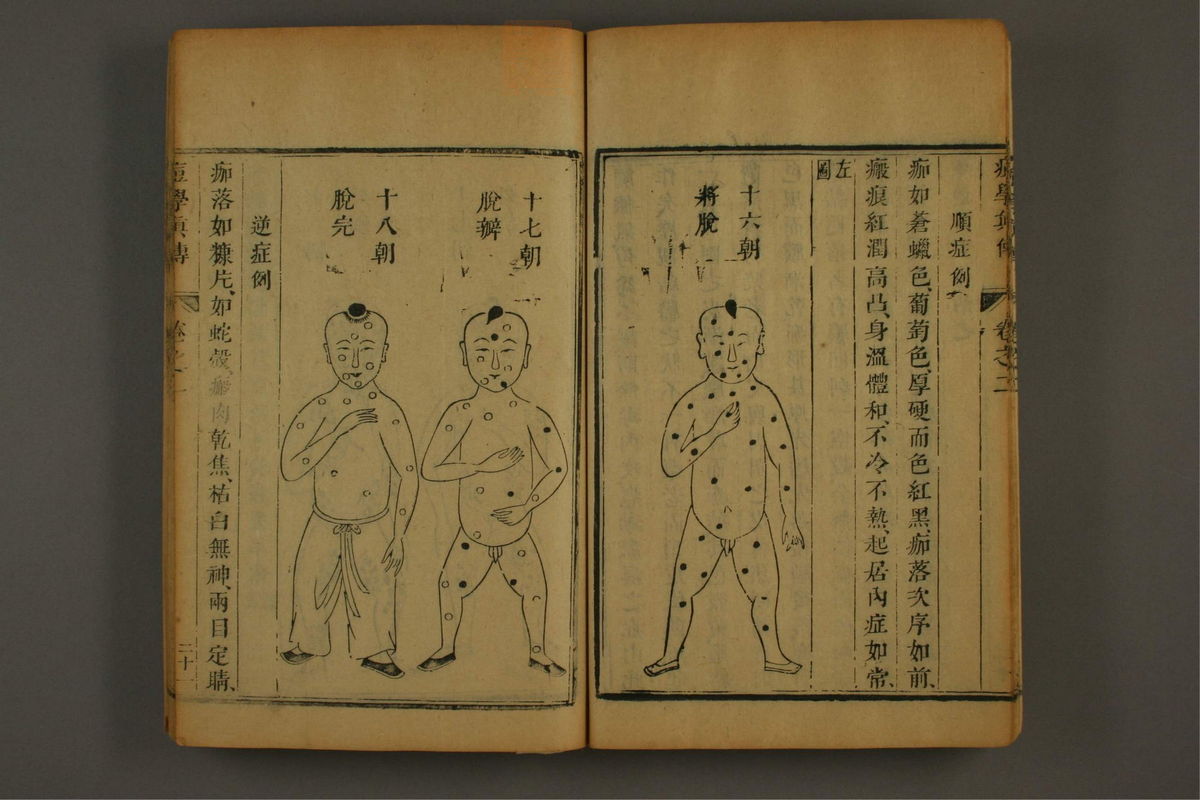 痘學真傳
卷之二
順症例
痂如蒼蠟色、葡萄色、厚硬而色紅黑、痂落次序如前、
瘢痕紅潤高凸、身溫體和、不冷不熱、起居內症如常、
左圖
十六朝
將脫
十七朝
脫瓣
十八朝
脫完
逆症例
痂落如糠片、如蛇殼、瘢肉乾焦、枯白無神、兩目定睛、
痘學真傳
卷之二
二十一